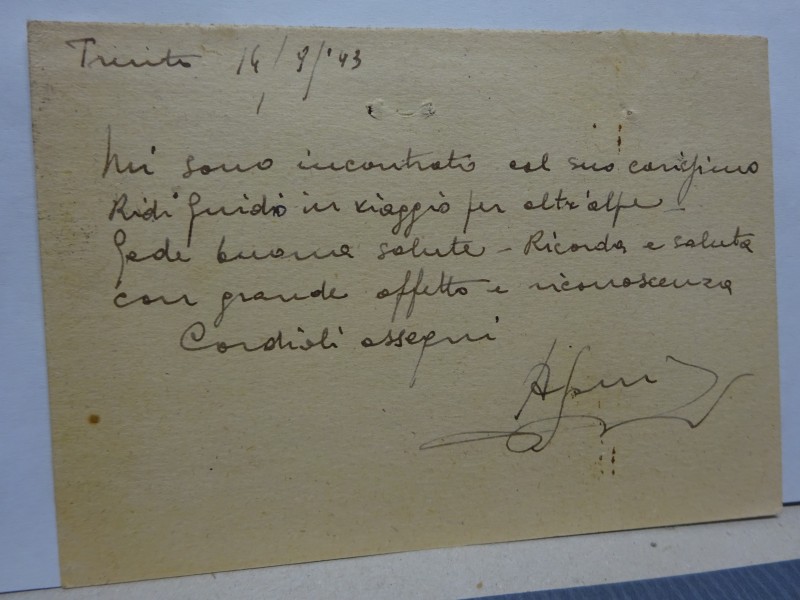 Trento 14/9/'43
Mi sono incontrato col suo carissimo
Ridi Guido in viaggio per oltr'alpe -
Gode buona salute - Ricorda e saluta
con grande affetto e riconoscenza
Cordiali ossequi